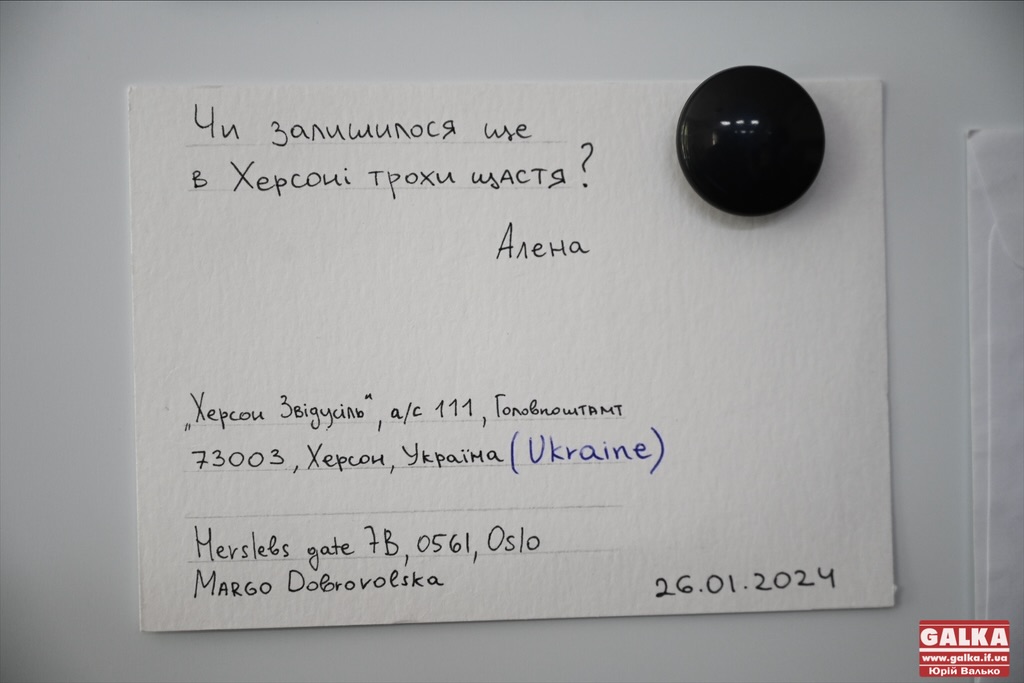 Чи залишилося ще
в Херсоні трохи щастя?
Алена
„Херсон Звідусіль", а/с 111, Головпоштамт
73003, Херсон, Україна (Ukraine)
Merslebs gate 7B, 0561, Oslo
Margo Dobrovolska
26.01.2024
GALKA
www.galka.if.ua
Юрій Валько